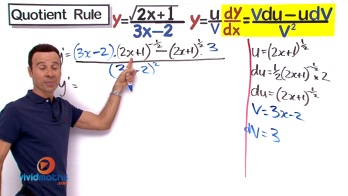 Quotient Rule y=√2x+1/3x-2 y=u/v dy/dx=Vdu-udV/V²
y'=(3x-2)·(2x+1)^-½-(2x+1)^½·3
(3x-2)²
y'=
u=(2x+1)^½
du=½(2x+1)^-½×2
du=(2x+1)^-½
V=3x-2
dV=3
vividmaths.com